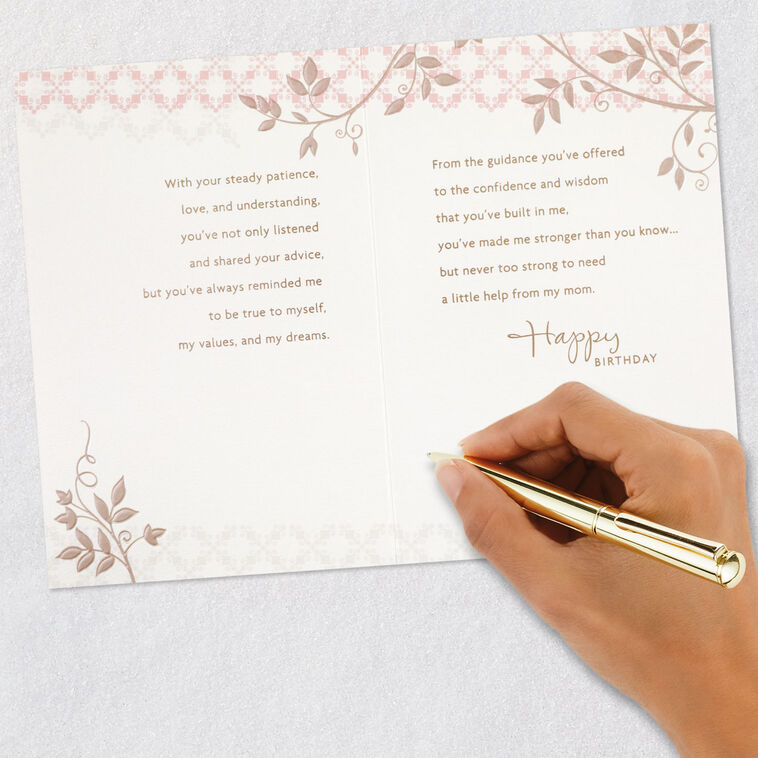 With your steady patience,
love, and understanding,
you've not only listened
and shared your advice,
but you've always reminded me
to be true to myself,
my values, and my dreams.
From the guidance you've offered
to the confidence and wisdom
that you've built in me,
you've made me stronger than you know...
but never too strong to need
a little help from my mom.
Happy
BIRTHDAY